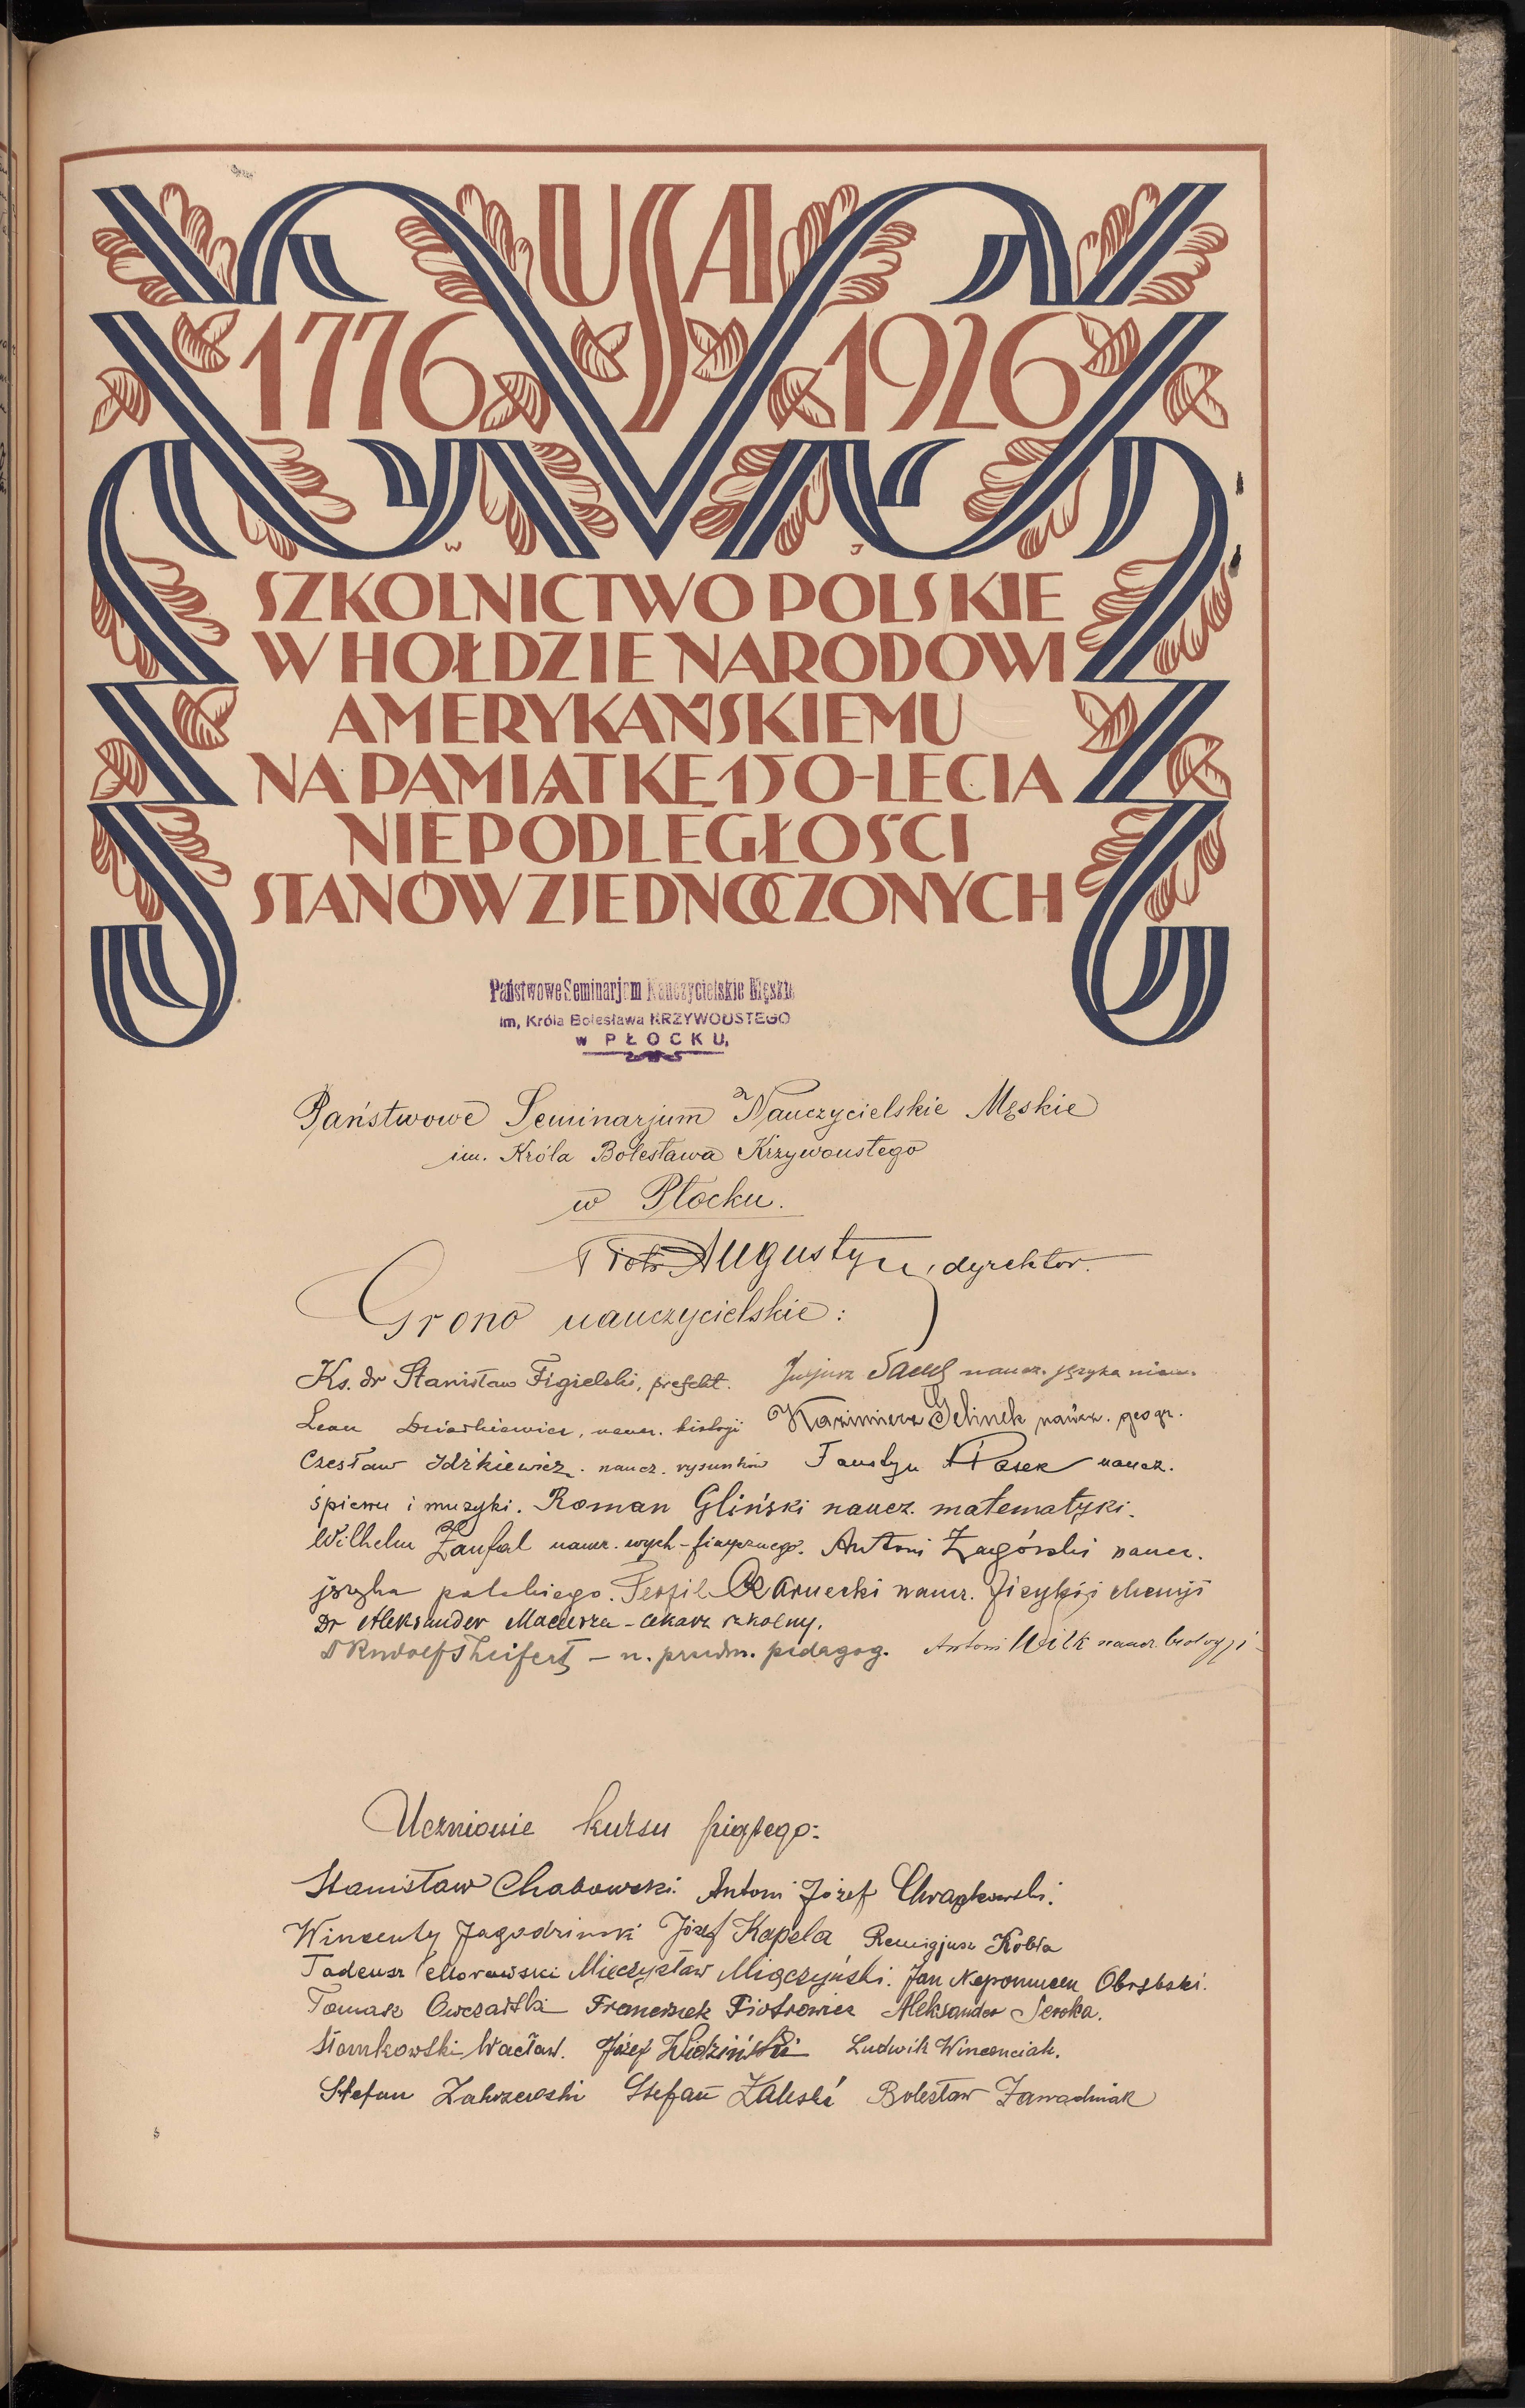 USA
1776 1926
W J
SZKOLNICTWO POLSKIE
W HOŁDZIE NARODOWI
AMERYKAŃSKIEMU
NA PAMIĄTKĘ 150-LECIA
NIEPODLEGŁOŚCI
STANÓW ZJEDNOCZONYCH
Państwowe Seminarjum Nauczycielskie Męskie
im, Króla Bolesława KRZYWOUSTEGO
w PŁOCKU,
Państwowe Seminarjum Nauczycielskie Męskie
im. Króla Bolesława Krzywoustego
w Płocku.
Piotr Augustyn, dyrektor.
Grono nauczycielskie:
Ks. dr Stanisław Figielski, prefekt. naucz. języka niem.
Leon naucz. biologji Kazimierz Jelinek naucz. geogr.
Czesław Idźkiewicz. naucz. rysunków Faustyn Piasek naucz.
śpiewu i muzyki. Roman Gliński naucz. matematyki.
Wilhelm Zaufal naucz. wych-fizycznego. Antoni Zagórski naucz.
języka polskiego. Teofil Czarnecki naucz. fizyki i chemji
Dr Aleksander Maciesza - lekarz szkolny.
Dr Rudolf Theifert - n. przedm. pedagog. Antoni Wilk naucz. biologji
Uczniowie kursu piątego:
Stanisław Chabowski. Antoni Józef Chrapkowski.
Wincenty Jagodziński Józef Kapela Remigjusz Kobla
Tadeusz Morawski Mieczysław Miączyński. Jan Nepomucen Obrębski.
Tomasz Owczarski Franciszek Piotrowicz Aleksander Seroka.
Słomkowski Wacław. Józef Widziński Ludwik Wincenciak.
Stefan Zakrzewski Stefan Zaleski Bolesław Zawadniak